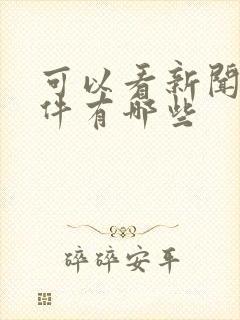 可以看新聞
件有哪些
碎碎安平